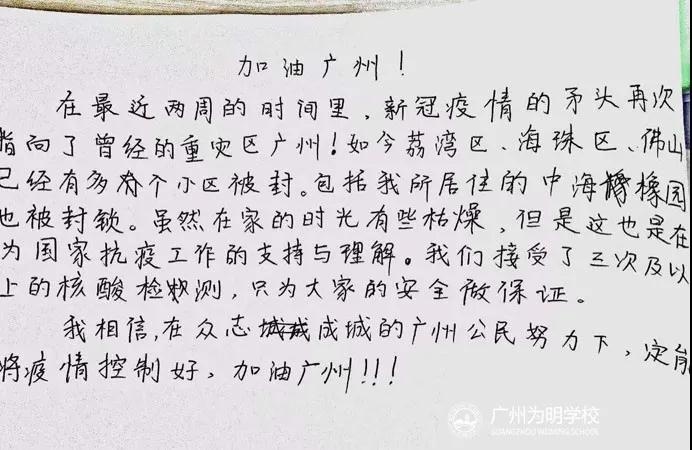 加油广州!
在最近两周的时间里,新冠疫情的矛头再次
指向了曾经的重灾区广州!如今荔湾区、海珠区、佛山
已经有多个小区被封。包括我所居住的中海橡园
也被封锁。虽然在家的时光有些枯燥,但是这也是在
为国家抗疫工作的支持与理解。我们接受了三次及以
上的核酸检测,只为大家的安全做保证。
我相信,在众志成城的广州公民努力下,定能
将疫情控制好,加油广州!!!
广州为明学校
GUANGZHOU WEIMING SCHOOL